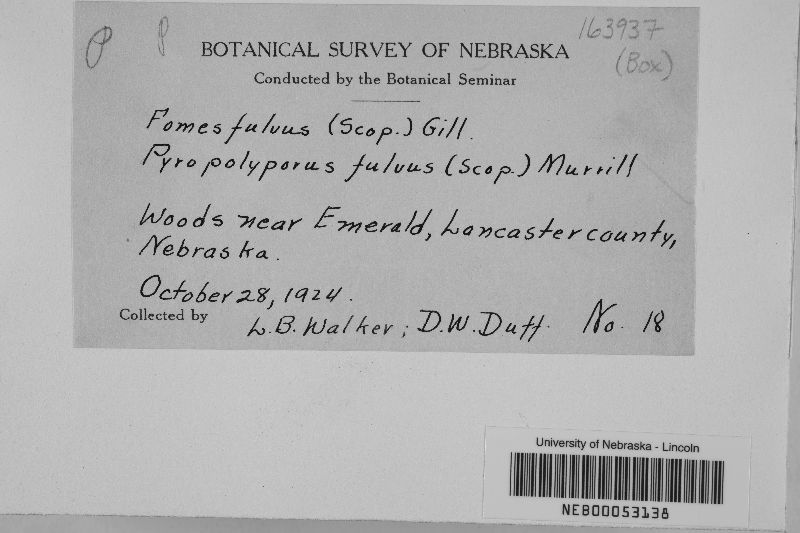 P P 163937
BOTANICAL SURVEY OF NEBRASKA
(Box)
Conducted by the Botanical Seminar
Fomes fulvus (Scop.) Gill.
Pyropolyporus fulvus (Scop.) Murrill
Woods near Emerald, Lancaster county,
Nebraska.
October 28, 1924.
Collected by L.B. Walker; D.W. Duff. No. 18
University of Nebraska - Lincoln
NEB00053138